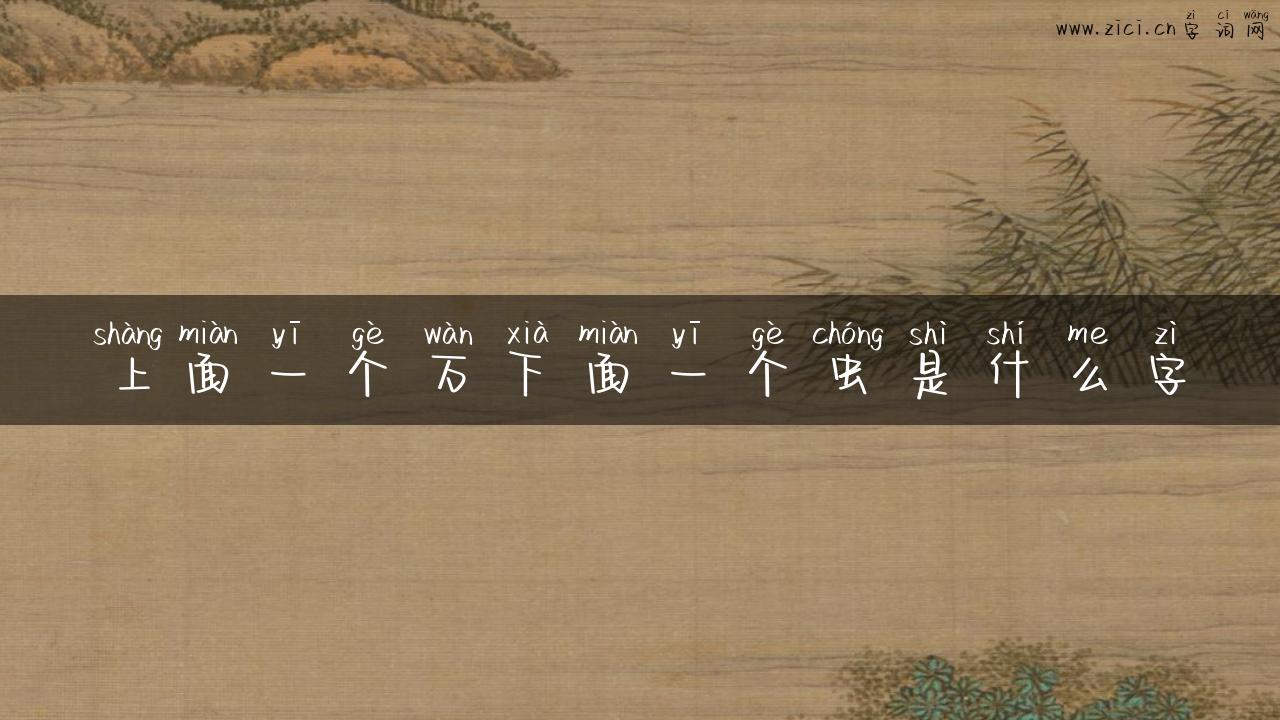 zì cí wǎng
www.zici.cn 字词网
shàng miàn yī gè wàn xià miàn yī gè chóng shì shí me zì
上面一个万下面一个虫是什么字